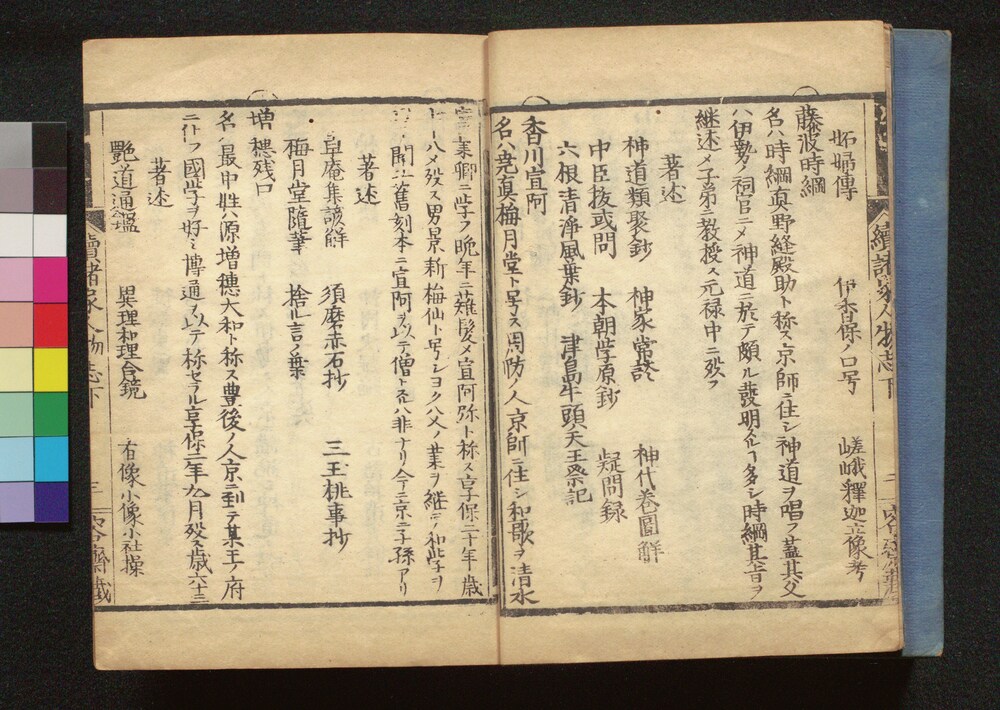 妬婦傳 伊香保ノ口号 嵯峨釋迦立像考
藤波時綱
名ハ時綱真野縫殿助ト称ス京師ニ住シ神道ヲ唱フ蓋其父
ハ伊勢ノ祠官ニメ神道ニ於テ頗ル發明多シ時綱其旨ヲ
継述メ子弟ニ教授ス元禄中ニ殁ス
著述
神道類聚鈔 神家常談 神代巻圖解
中臣祓或問 本朝学原鈔 疑問録
六根清淨風葉鈔 津島牛頭天王祭記
香川宣阿
名ハ堯真梅月堂ト号ス周防ノ人京師ニ住シ和歌ヲ清水
業卿ニ学フ晩年ニ薙髪メ宣阿弥ト称ス享保二十年歳
十一八メ殁ス男景新梅仙ト号シヨク父ノ業ヲ継テ和学ヲ
開ニ舊刻本ニ宣阿ヲ以テ僧トスハ非ナリ今ニ京ニ子孫アリ
著述
草庵集諺解 須磨赤石抄 三玉桃事抄
梅月堂随筆 捨ル言ノ葉
増穂残口
名ハ最中姓ハ源増穂大和ト称ス豊後ノ人京ニ到テ某王ノ府
ニ仕フ國学ヲ好ミ博通ヲ以テ称セラル享保二年九月殁ス歳六十三
著述
艶道通鑑 異理和理合鏡 有像小像小社操
續諸家人物志下